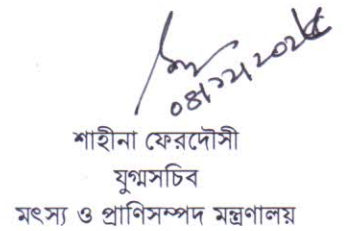 শাহীনা ফেরদৌসী
যুগ্মসচিব
মৎস্য ও প্রাণিসম্পদ মন্ত্রণালয়